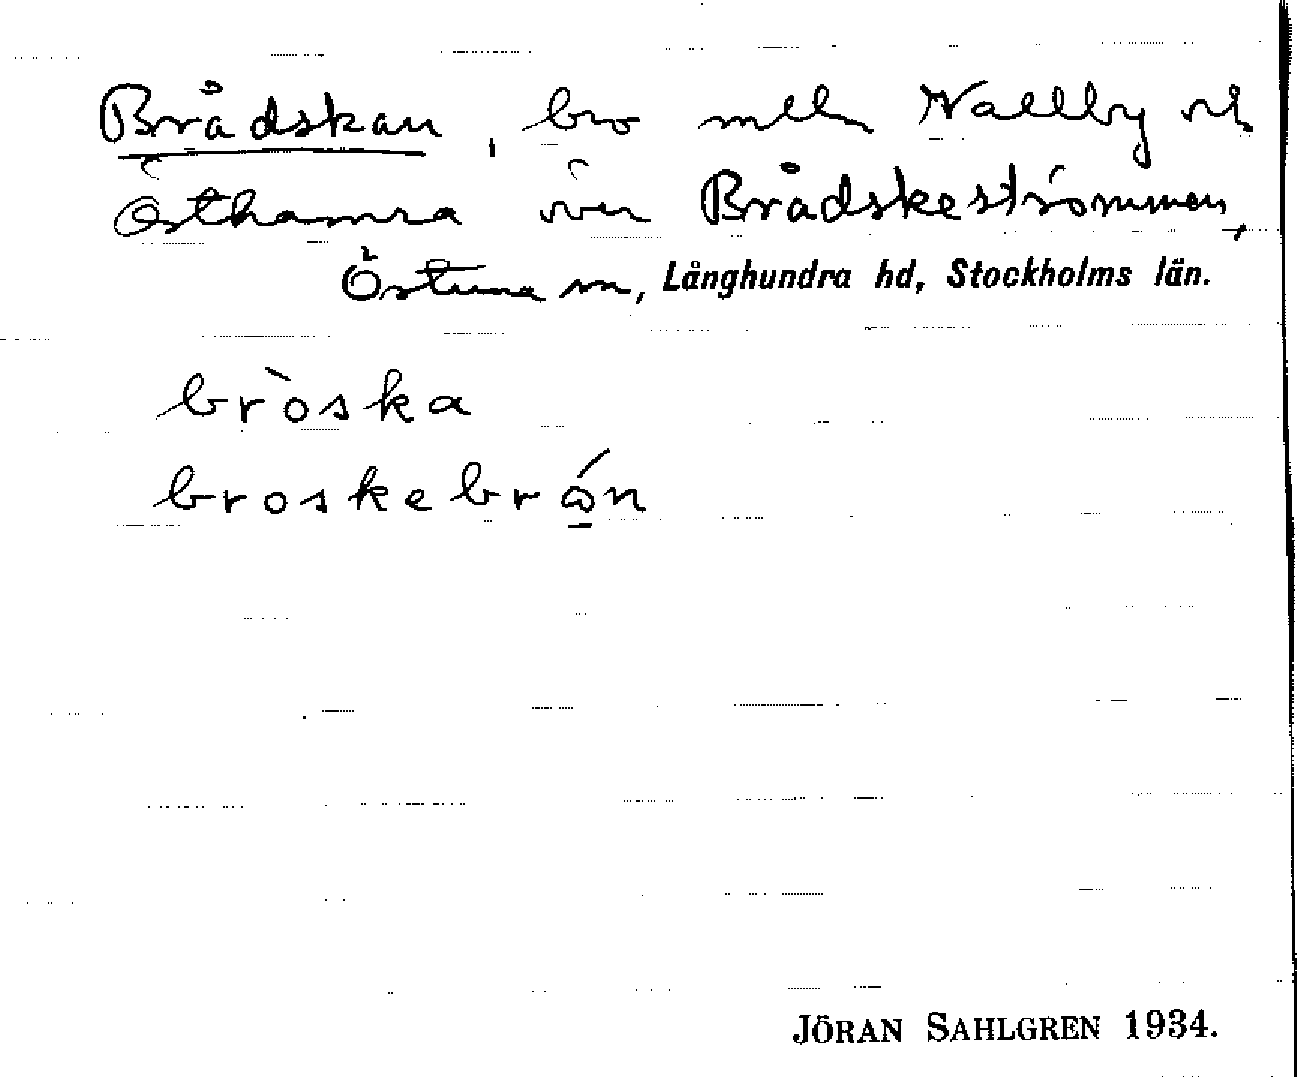 Brådskan, bro mell Vallby och
Östhamra över Brådskeströmmen,
Östuna sn, Långhundra hd, Stockholms län.
bròska
broskebrón
JÖRAN SAHLGREN 1934.